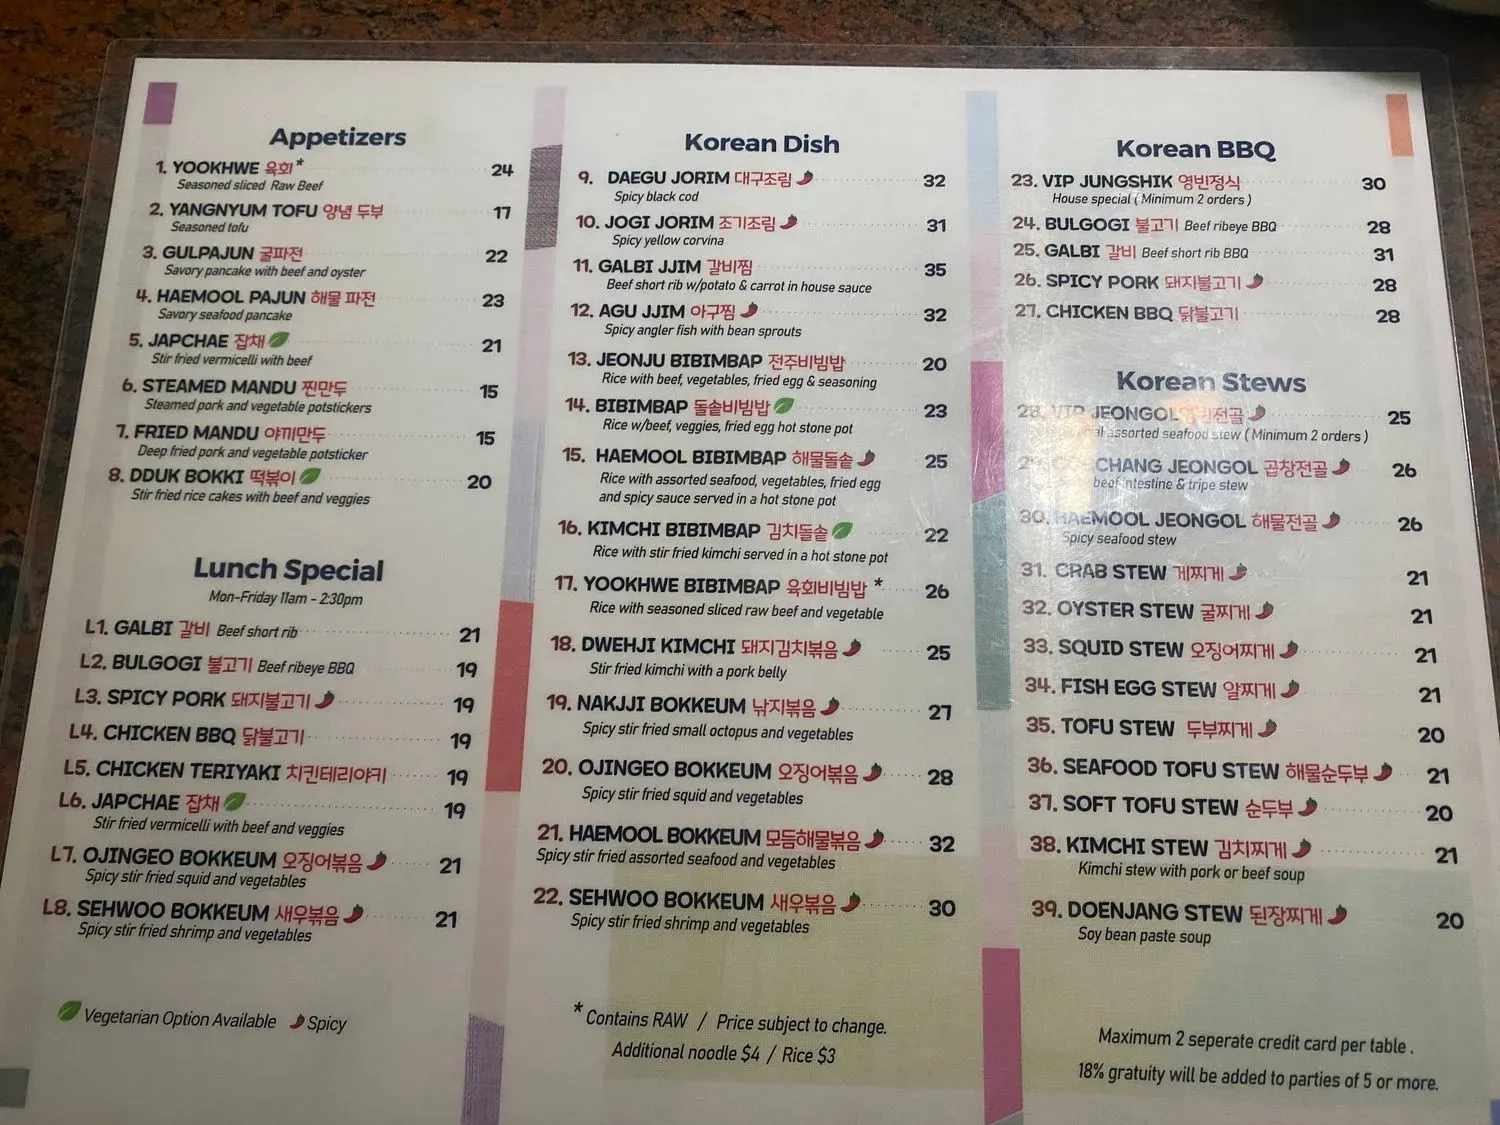 Appetizers
1. YOOKHWE 육회* 24
Seasoned sliced Raw Beef
2. YANGNYUM TOFU 양념 두부 17
Seasoned tofu
3. GULPAJUN 굴파전 22
Savory pancake with beef and oyster
4. HAEMOOL PAJUN 해물 파전 23
Savory seafood pancake
5. JAPCHAE 잡채 21
Stir fried vermicelli with beef
6. STEAMED MANDU 찐만두 15
Steamed pork and vegetable potstickers
7. FRIED MANDU 야끼만두 15
Deep fried pork and vegetable potsticker
8. DDUK BOKKI 떡볶이 20
Stir fried rice cakes with beef and veggies
Lunch Special
Mon-Friday 11am - 2:30pm
L1. GALBI 갈비 Beef short rib 21
L2. BULGOGI 불고기 Beef ribeye BBQ 19
L3. SPICY PORK 돼지불고기 19
L4. CHICKEN BBQ 닭불고기 19
L5. CHICKEN TERIYAKI 치킨테리야키 19
L6. JAPCHAE 잡채 19
Stir fried vermicelli with beef and veggies
L7. OJINGEO BOKKEUM 오징어볶음 21
Spicy stir fried squid and vegetables
L8. SEHWOO BOKKEUM 새우볶음 21
Spicy stir fried shrimp and vegetables
Vegetarian Option Available Spicy
Korean Dish
9. DAEGU JORIM 대구조림 32
Spicy black cod
10. JOGI JORIM 조기조림 31
Spicy yellow corvina
11. GALBI JJIM 갈비찜 35
Beef short rib w/potato & carrot in house sauce
12. AGU JJIM 아구찜 32
Spicy angler fish with bean sprouts
13. JEONJU BIBIMBAP 전주비빔밥 20
Rice with beef, vegetables, fried egg & seasoning
14. BIBIMBAP 돌솥비빔밥 23
Rice w/beef, veggies, fried egg hot stone pot
15. HAEMOOL BIBIMBAP 해물돌솥 25
Rice with assorted seafood, vegetables, fried egg
and spicy sauce served in a hot stone pot
16. KIMCHI BIBIMBAP 김치돌솥 22
Rice with stir fried kimchi served in a hot stone pot
17. YOOKHWE BIBIMBAP 육회비빔밥 * 26
Rice with seasoned sliced raw beef and vegetable
18. DWEHJI KIMCHI 돼지김치볶음 25
Stir fried kimchi with a pork belly
19. NAKJJI BOKKEUM 낚지볶음 27
Spicy stir fried small octopus and vegetables
20. OJINGEO BOKKEUM 오징어볶음 28
Spicy stir fried squid and vegetables
21. HAEMOOL BOKKEUM 모듬해물볶음 32
Spicy stir fried assorted seafood and vegetables
22. SEHWOO BOKKEUM 새우볶음 30
Spicy stir fried shrimp and vegetables
* Contains RAW / Price subject to change.
Additional noodle $4 / Rice $3
Korean BBQ
23. VIP JUNGSHIK 영빈정식 30
House special ( Minimum 2 orders )
24. BULGOGI 불고기 Beef ribeye BBQ 28
25. GALBI 갈비 Beef short rib BBQ 31
26. SPICY PORK 돼지불고기 28
27. CHICKEN BBQ 닭불고기 28
Korean Stews
28. VIP JEONGOL 영빈전골 25
assorted seafood stew ( Minimum 2 orders )
CHANG JEONGOL 곱창전골 26
beef intestine & tripe stew
30. HAEMOOL JEONGOL 해물전골 26
Spicy seafood stew
31. CRAB STEW 게찌게 21
32. OYSTER STEW 굴찌게 21
33. SQUID STEW 오징어찌게 21
34. FISH EGG STEW 알찌게 21
35. TOFU STEW 두부찌게 20
36. SEAFOOD TOFU STEW 해물순두부 21
37. SOFT TOFU STEW 순두부 20
38. KIMCHI STEW 김치찌게 21
Kimchi stew with pork or beef soup
39. DOENJANG STEW 된장찌게 20
Soy bean paste soup
Maximum 2 seperate credit card per table .
18% gratuity will be added to parties of 5 or more.